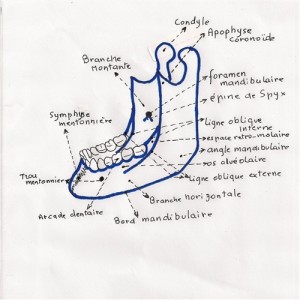 Condyle
Apophyse
coronoïde
Branche
montante
foramen
mandibulaire
épine de Spyx
Symphyse
mentonnière
ligne oblique
interne
espace rétro-molaire
angle mandibulaire
os alvéolaire
ligne oblique externe
Trou
mentonnier
Branche horizontale
Arcade dentaire
Bord mandibulaire